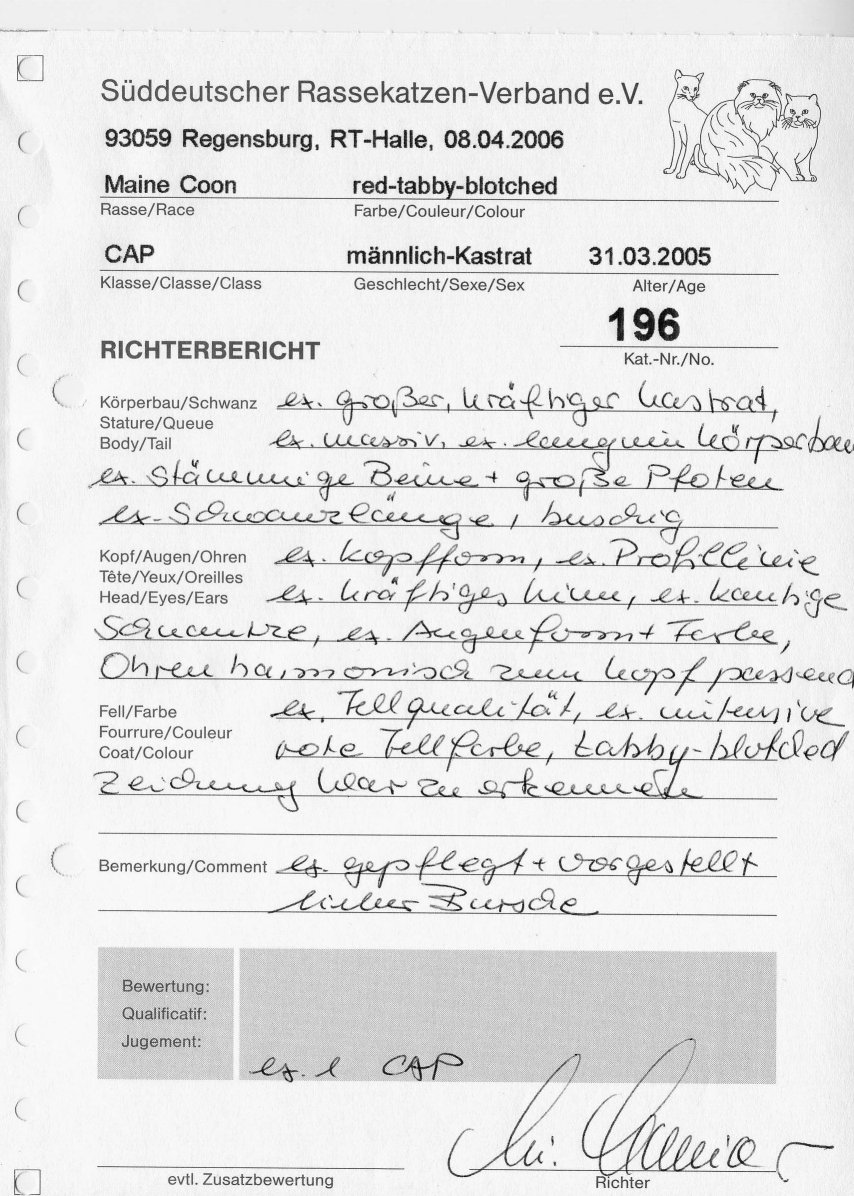 Süddeutscher Rassekatzen-Verband e.V.
93059 Regensburg, RT-Halle, 08.04.2006
Maine Coon red-tabby-blotched
Rasse/Race Farbe/Couleur/Colour
CAP männlich-Kastrat 31.03.2005
Klasse/Classe/Class Geschlecht/Sexe/Sex Alter/Age
196
RICHTERBERICHT Kat.-Nr./No.
Körperbau/Schwanz ex. großer, kräftiger Kastrat,
Stature/Queue
Body/Tail ex. massiv, ex. Körperbau
ex. Stämmige Beine + große Pfoten
ex. Schwanzlänge, buschig
Kopf/Augen/Ohren ex. Kopfform, ex. Profillinie
Tête/Yeux/Oreilles
Head/Eyes/Ears ex. kräftiges Kinn, ex. kantige
Schnauze, ex. Augenform + Farbe,
Ohren harmonisch zum Kopf passend
Fell/Farbe ex. Fellqualität, ex. intensive
Fourrure/Couleur
Coat/Colour rote Fellfarbe, tabby-blotched
Zeichnung klar zu erkennen
Bemerkung/Comment ex. gepflegt + vorgestellt
lieber Bursche
Bewertung:
Qualificatif:
Jugement:
ex. 1 CAP
evtl. Zusatzbewertung Richter